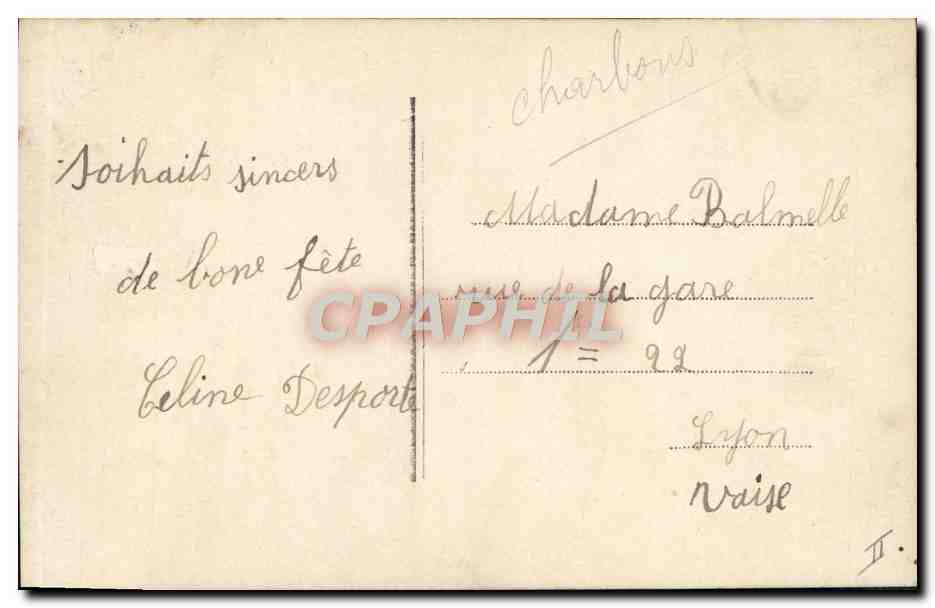 Soihaits sincers
de bone fête
Celine Desporte
charbons
Madame Balmelle
rue de la gare
1 = 22
Lyon
Vaise
II.
CPAPHIL